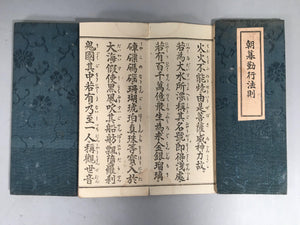 朝暮勤行法則
火火不能燒由是菩薩威神力故
若為大水所漂稱其名號即得淺處
若有百千萬億衆生為求金銀瑠璃
硨磲碼碯珊瑚琥珀真珠等寶入於
大海假使黒風吹其船舫飄墮羅刹
鬼國其中若有乃至一人稱觀世音